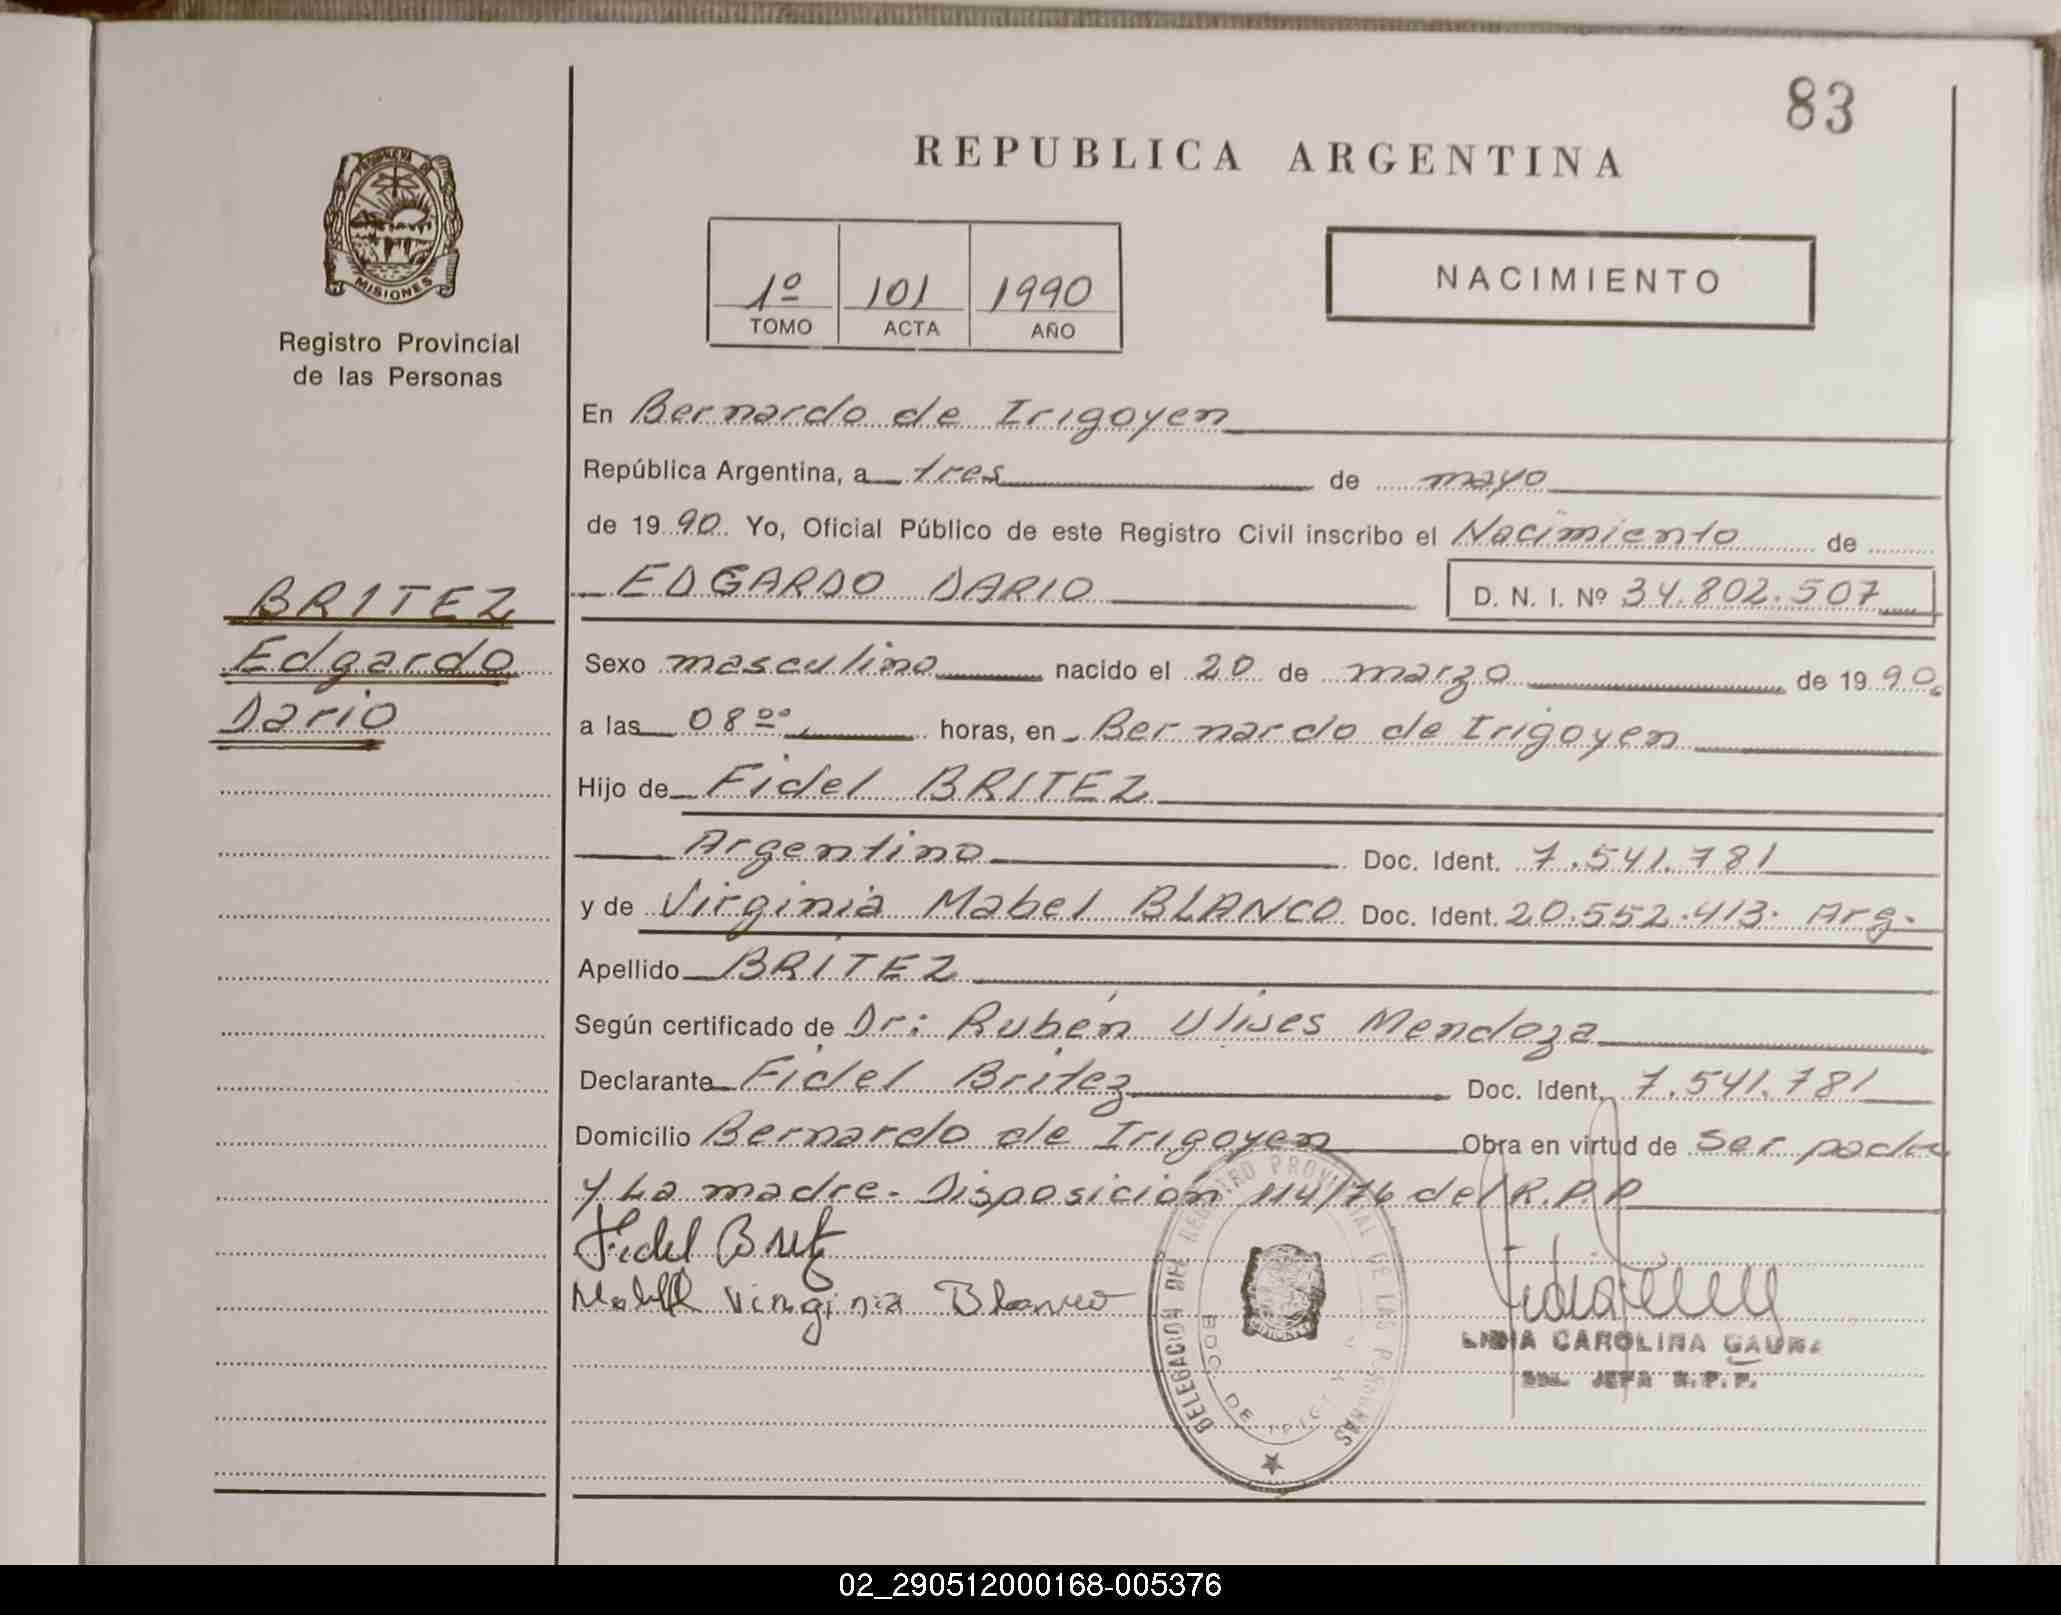 83
REPUBLICA ARGENTINA
MISIONES
Registro Provincial
de las Personas
1º 101 1990
TOMO ACTA AÑO
NACIMIENTO
En Bernardo de Irigoyen
República Argentina, a tres de mayo
de 1990. Yo, Oficial Público de este Registro Civil inscribo el Nacimiento de
EDGARDO DARIO D. N. I. Nº 34.802.507
BRITEZ
Edgardo
Dario
Sexo masculino nacido el 20 de marzo de 1990
a las 08ºº horas, en Bernardo de Irigoyen
Hijo de Fidel BRITEZ
Argentino Doc. Ident. 7.541.781
y de Virginia Mabel BLANCO Doc. Ident. 20.552.413. Arg.
Apellido BRITEZ
Según certificado de Dr: Rubén Ulises Mendoza
Declarante Fidel Britez Doc. Ident. 7.541.781
Domicilio Bernardo de Irigoyen Obra en virtud de ser padre
y La madre. Disposición 114/76 del R.P.P
Fidel Britez
Virginia Blanco
DELEGACION DEL REGISTRO PROVINCIAL DE LAS PERSONAS
LIDIA CAROLINA GAUNA
JEFA R.P.P.
02_290512000168-005376